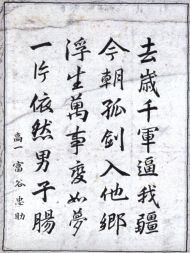 去歳千軍逼我疆
今朝孤剣入他郷
浮生萬事変如夢
一片依然男子腸
高一 富谷忠助